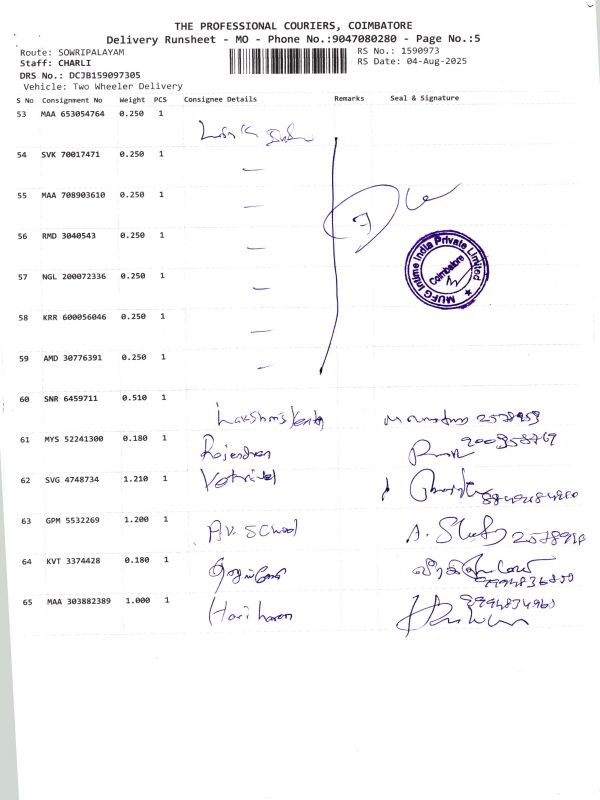 THE PROFESSIONAL COURIERS, COIMBATORE
Delivery Runsheet - MO - Phone No.:9047080280 - Page No.:5
Route: SOWRIPALAYAM RS No.: 1590973
Staff: CHARLI RS Date: 04-Aug-2025
DRS No.: DCJB159097305
Vehicle: Two Wheeler Delivery
S No Consignment No Weight PCS Consignee Details Remarks Seal & Signature
53 MAA 653054764 0.250 1
54 SVK 70017471 0.250 1 —
55 MAA 708903610 0.250 1 —
7
56 RMD 3040543 0.250 1 —
MUFG Intime India Private Limited
Coimbatore
57 NGL 200072336 0.250 1 —
58 KRR 600056046 0.250 1 —
59 AMD 30776391 0.250 1 —
60 SNR 6459711 0.510 1
61 MYS 52241300 0.180 1
Rajendran
62 SVG 4748734 1.210 1
Vetrivel
63 GPM 5532269 1.200 1
A.V. School
64 KVT 3374428 0.180 1
65 MAA 303882389 1.000 1
Hariharan